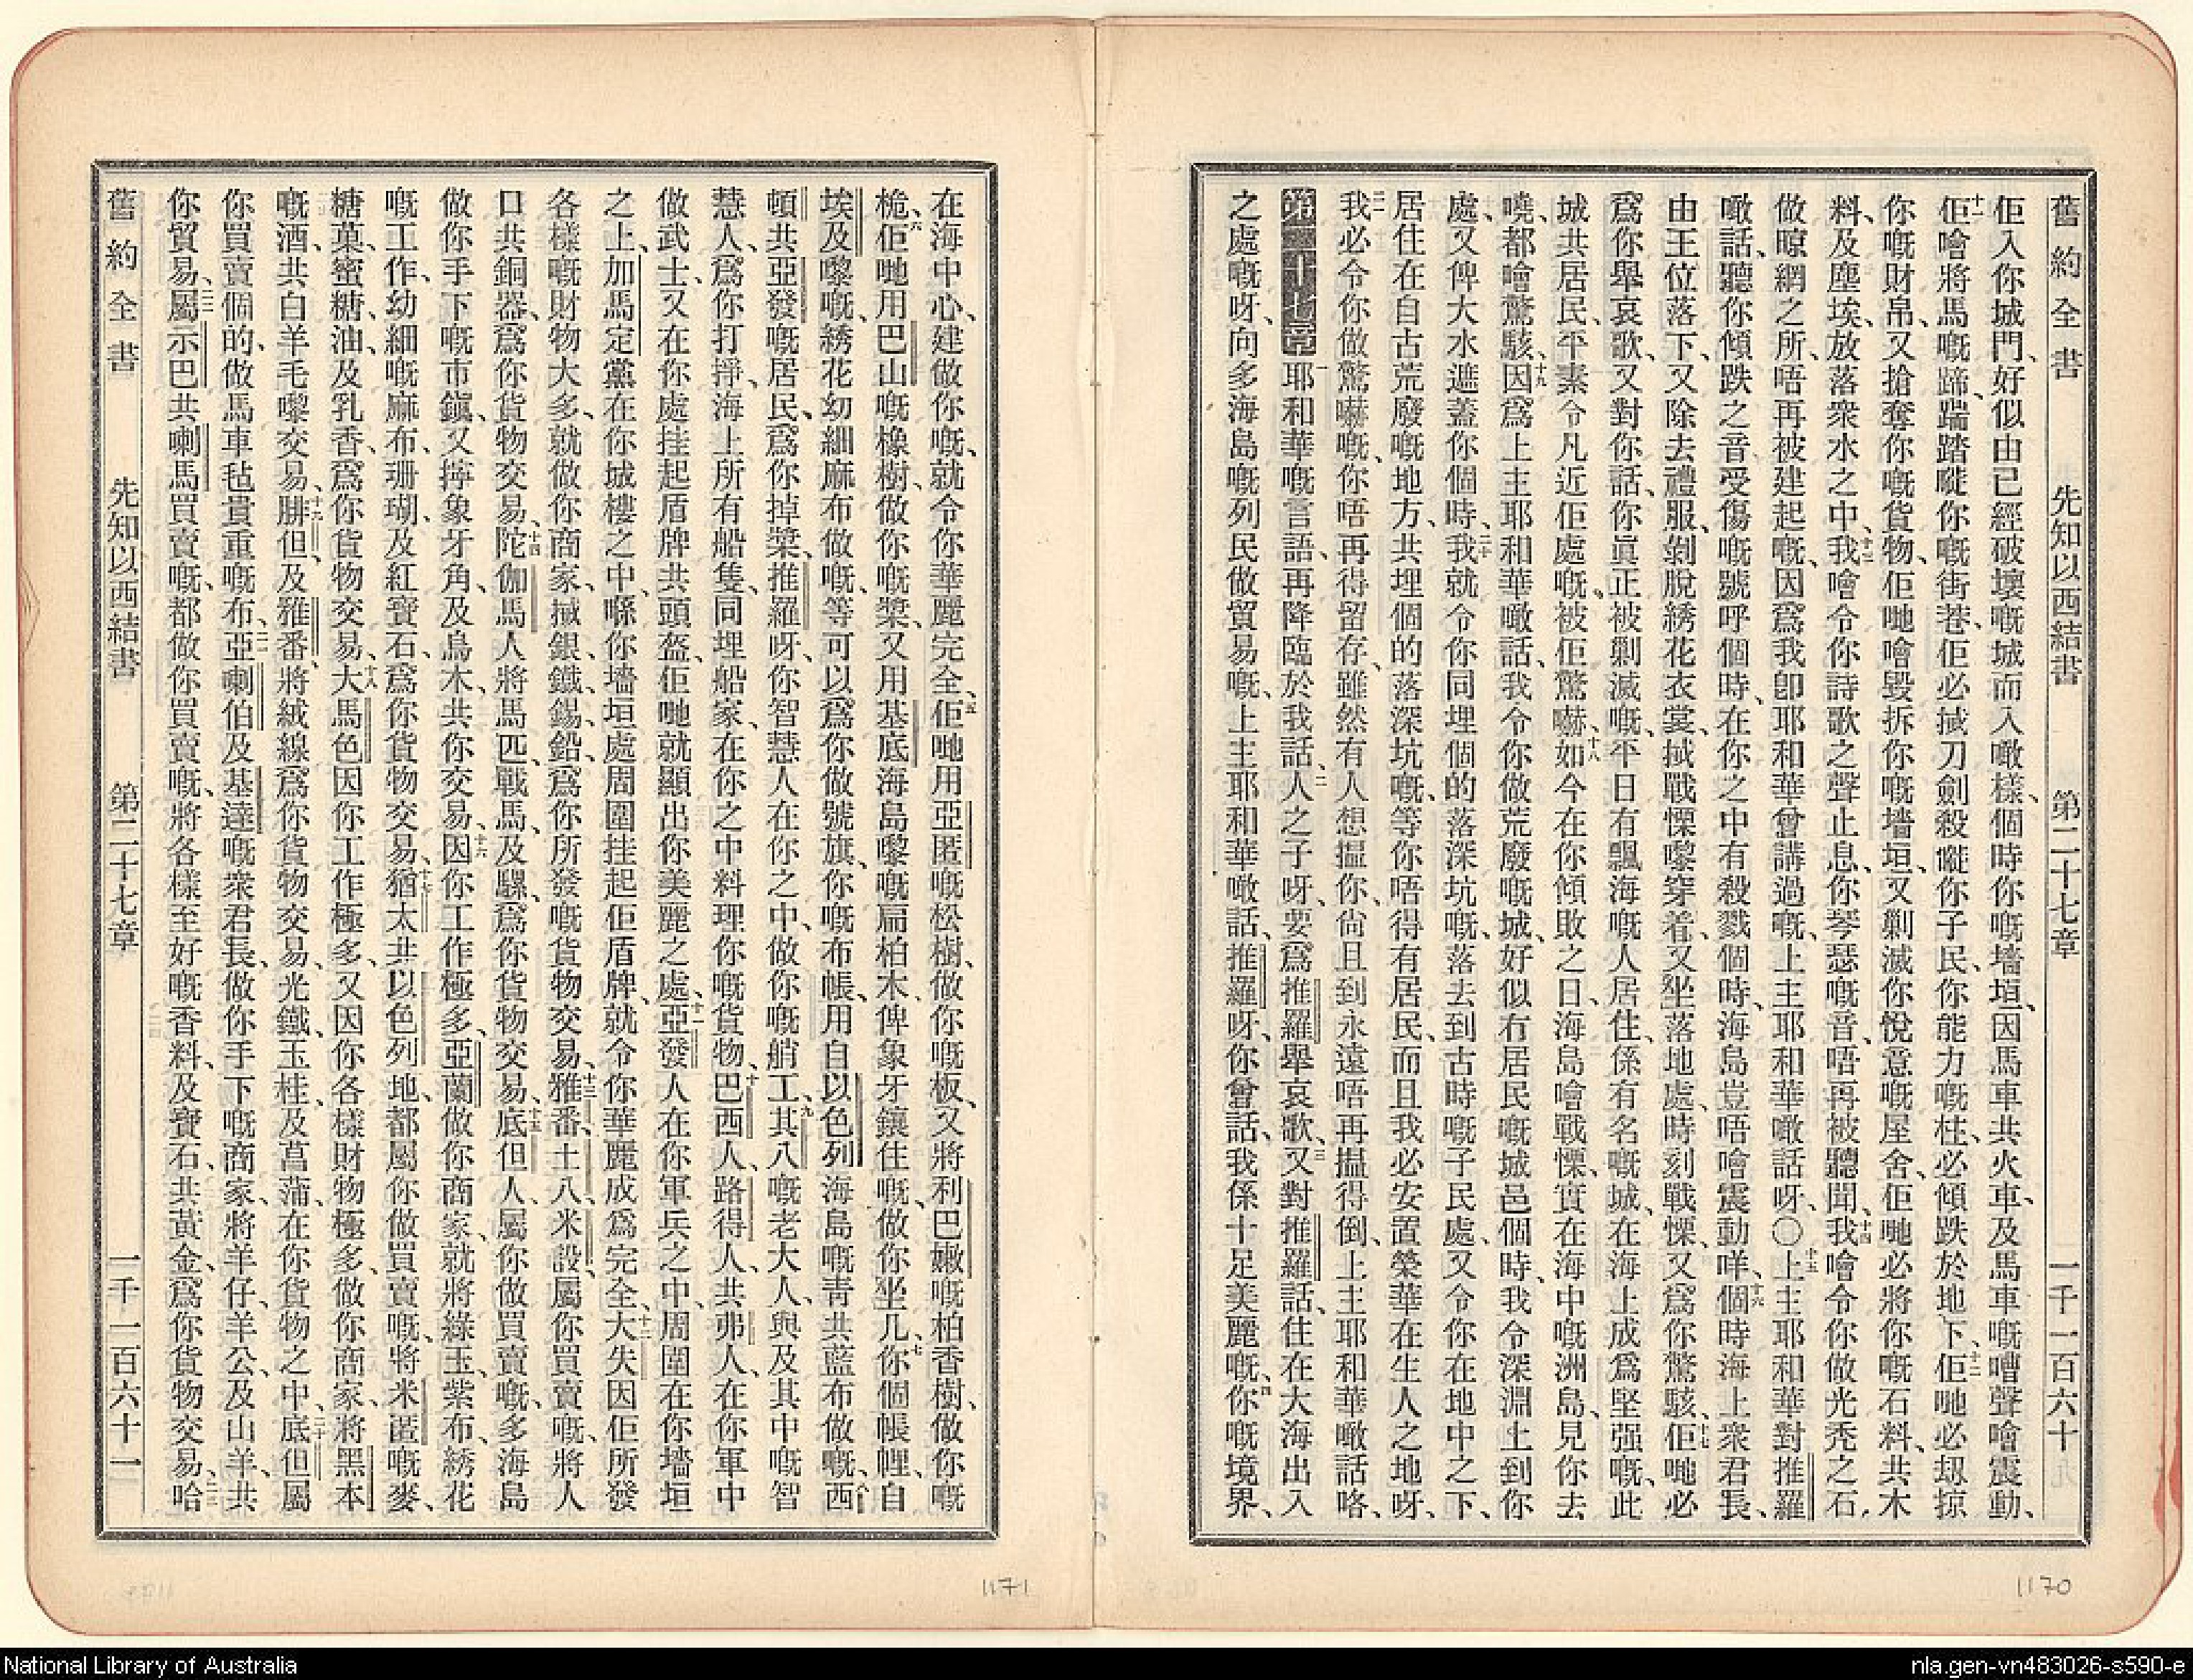 舊約全書　先知以西結書　第二十七章　一千一百六十
佢入你城門、好似由已經破壞嘅城而入噉樣、個時你嘅墻垣、因馬車共火車、及馬車嘅嘈聲噲震動、
十一佢噲將馬嘅蹄、踹踏嘥你嘅街巷、佢必㧜刀劍殺嘥你子民、你能力嘅柱、必傾跌於地下、十二佢哋必刼掠
你嘅財帛、又搶奪你嘅貨物、佢哋噲毀拆你嘅墻垣、又剿滅你悅意嘅屋舍、佢哋必將你嘅石料、共木
料、及塵埃、放落衆水之中、十三我噲令你詩歌之聲止息、你琴瑟嘅音、唔再被聽聞、十四我噲令你做光禿之石、
做晾網之所、唔再被建起嘅、因爲我卽耶和華曾講過嘅、上主耶和華噉話呀、〇十五上主耶和華對推羅
噉話、聽你傾跌之音、受傷嘅號呼個時、在你之中有殺戮個時、海島豈唔噲震動咩、十六個時海上衆君長、
由王位落下、又除去禮服、剝脫綉花衣裳、㧜戰慄嚟穿着、又坐落地處、時刻戰慄、又爲你驚駭、十七佢哋必
爲你舉哀歌、又對你話、你眞正被剿滅嘅、平日有飄海嘅人居住、係有名嘅城、在海上成爲堅强嘅、此
城共居民、平素令凡近佢處嘅、被佢驚嚇、十八如今在你傾敗之日、海島噲戰慄、實在海中嘅洲島、見你去
嘵、都噲驚駭、十九因爲上主耶和華噉話、我令你做荒廢嘅城、好似冇居民嘅城邑個時、我令深淵上到你
處、又俾大水遮蓋你個時、二十我就令你同埋個的落深坑嘅、落去到古時嘅子民處、又令你在地中之下、
居住在自古荒廢嘅地方、共埋個的落深坑嘅、等你唔得有居民、而且我必安置榮華在生人之地呀、
二一我必令你做驚嚇嘅、你唔再得留存、雖然有人想揾你、尙且到永遠唔再揾得倒、上主耶和華噉話咯、
第二十七章　一耶和華嘅言語、再降臨於我話、二人之子呀、要爲推羅舉哀歌、三又對推羅話、住在大海出入
之處嘅呀、向多海島嘅列民做貿易嘅、上主耶和華噉話、推羅呀、你曾話、我係十足美麗嘅、四你嘅境界、
1170
在海中心、建做你嘅、就令你華麗完全、五佢哋用亞匿嘅松樹、做你嘅板、又將利巴嫩嘅柏香樹、做你嘅
桅、六佢哋用巴山嘅橡樹、做你嘅槳、又用基底海島嚟嘅扁柏木、俾象牙鑲住嘅、做你坐几、七你個帳哩、自
埃及嚟嘅、綉花幼細麻布做嘅、等可以爲你做號旗、你嘅布帳、用自以色列海島嘅青共藍布做嘅、八西
頓共亞發嘅居民、爲你掉槳、推羅呀、你智慧人在你之中、做你嘅艄工、九其八嘅老大人、與及其中嘅智
慧人、爲你打掙、海上所有船隻、同埋船家、在你之中料理你嘅貨物、十巴西人、路得人、共弗人、在你軍中
做武士、又在你處挂起盾牌共頭盔、佢哋就顯出你美麗之處、十一亞發人在你軍兵之中、周圍在你墻垣
之上、加馬定黨在你城樓之中、喺你墻垣處周圍挂起佢盾牌、就令你華麗成爲完全、十二大失因佢所發
各樣嘅財物大多、就做你商家、㨢銀、鐵、錫、鉛、爲你所發嘅貨物交易、十三雅番、土八、米設、屬你買賣嘅、將人
口共銅器、爲你貨物交易、十四陀伽馬人將馬匹、戰馬、及騾、爲你貨物交易、十五底但人、屬你做買賣嘅、多海島
做你手下嘅市鎭、又擰象牙角、及烏木、共你交易、十六因你工作極多、亞蘭做你商家、就將綠玉、紫布、綉花
嘅工作、幼細嘅麻布、珊瑚、及紅寶石、爲你貨物交易、十七猶太共以色列地、都屬你做買賣嘅、將米匿嘅麥、
糖菓、蜜糖、油、及乳香、爲你貨物交易、十八大馬色因你工作極多、又因你各樣財物極多、做你商家、將黑本
嘅酒、共白羊毛嚟交易、十九腓但、及雅番、將絨線爲你貨物交易、光鐵、玉桂、及菖蒲、在你貨物之中、二十底但屬
你買賣個的、做馬車毡貴重嘅布、二一亞喇伯及基達嘅衆君長、做你手下嘅商家、將羊仔、羊公、及山羊、共
你貿易、二二屬示巴共喇馬買賣嘅、都做你買賣嘅、將各樣至好嘅香料、及寶石、共黃金、爲你貨物交易、二三哈
舊約全書　先知以西結書　第二十七章　一千一百六十一
1171
National Library of Australia
nla.gen-vn483026-s590-e